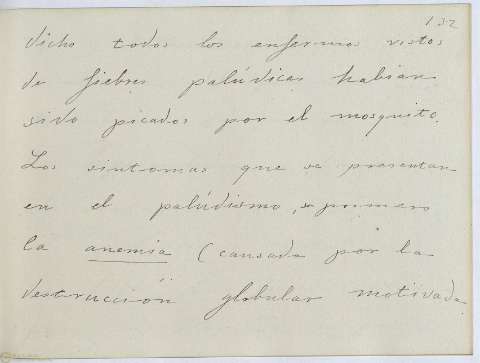 132
dicho todos los enfermos vistos
de fiebres palúdicas habian
sido picados por el mosquito.
Los sintomas que se presentan
en el palúdismo, es primero
la anemia (causada por la
destrucción globular motivada